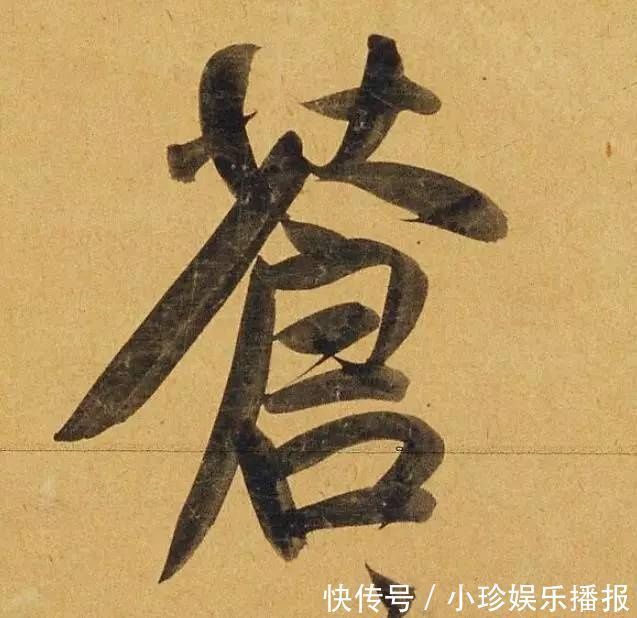 蒼
快传号 / 小珍娱乐播报